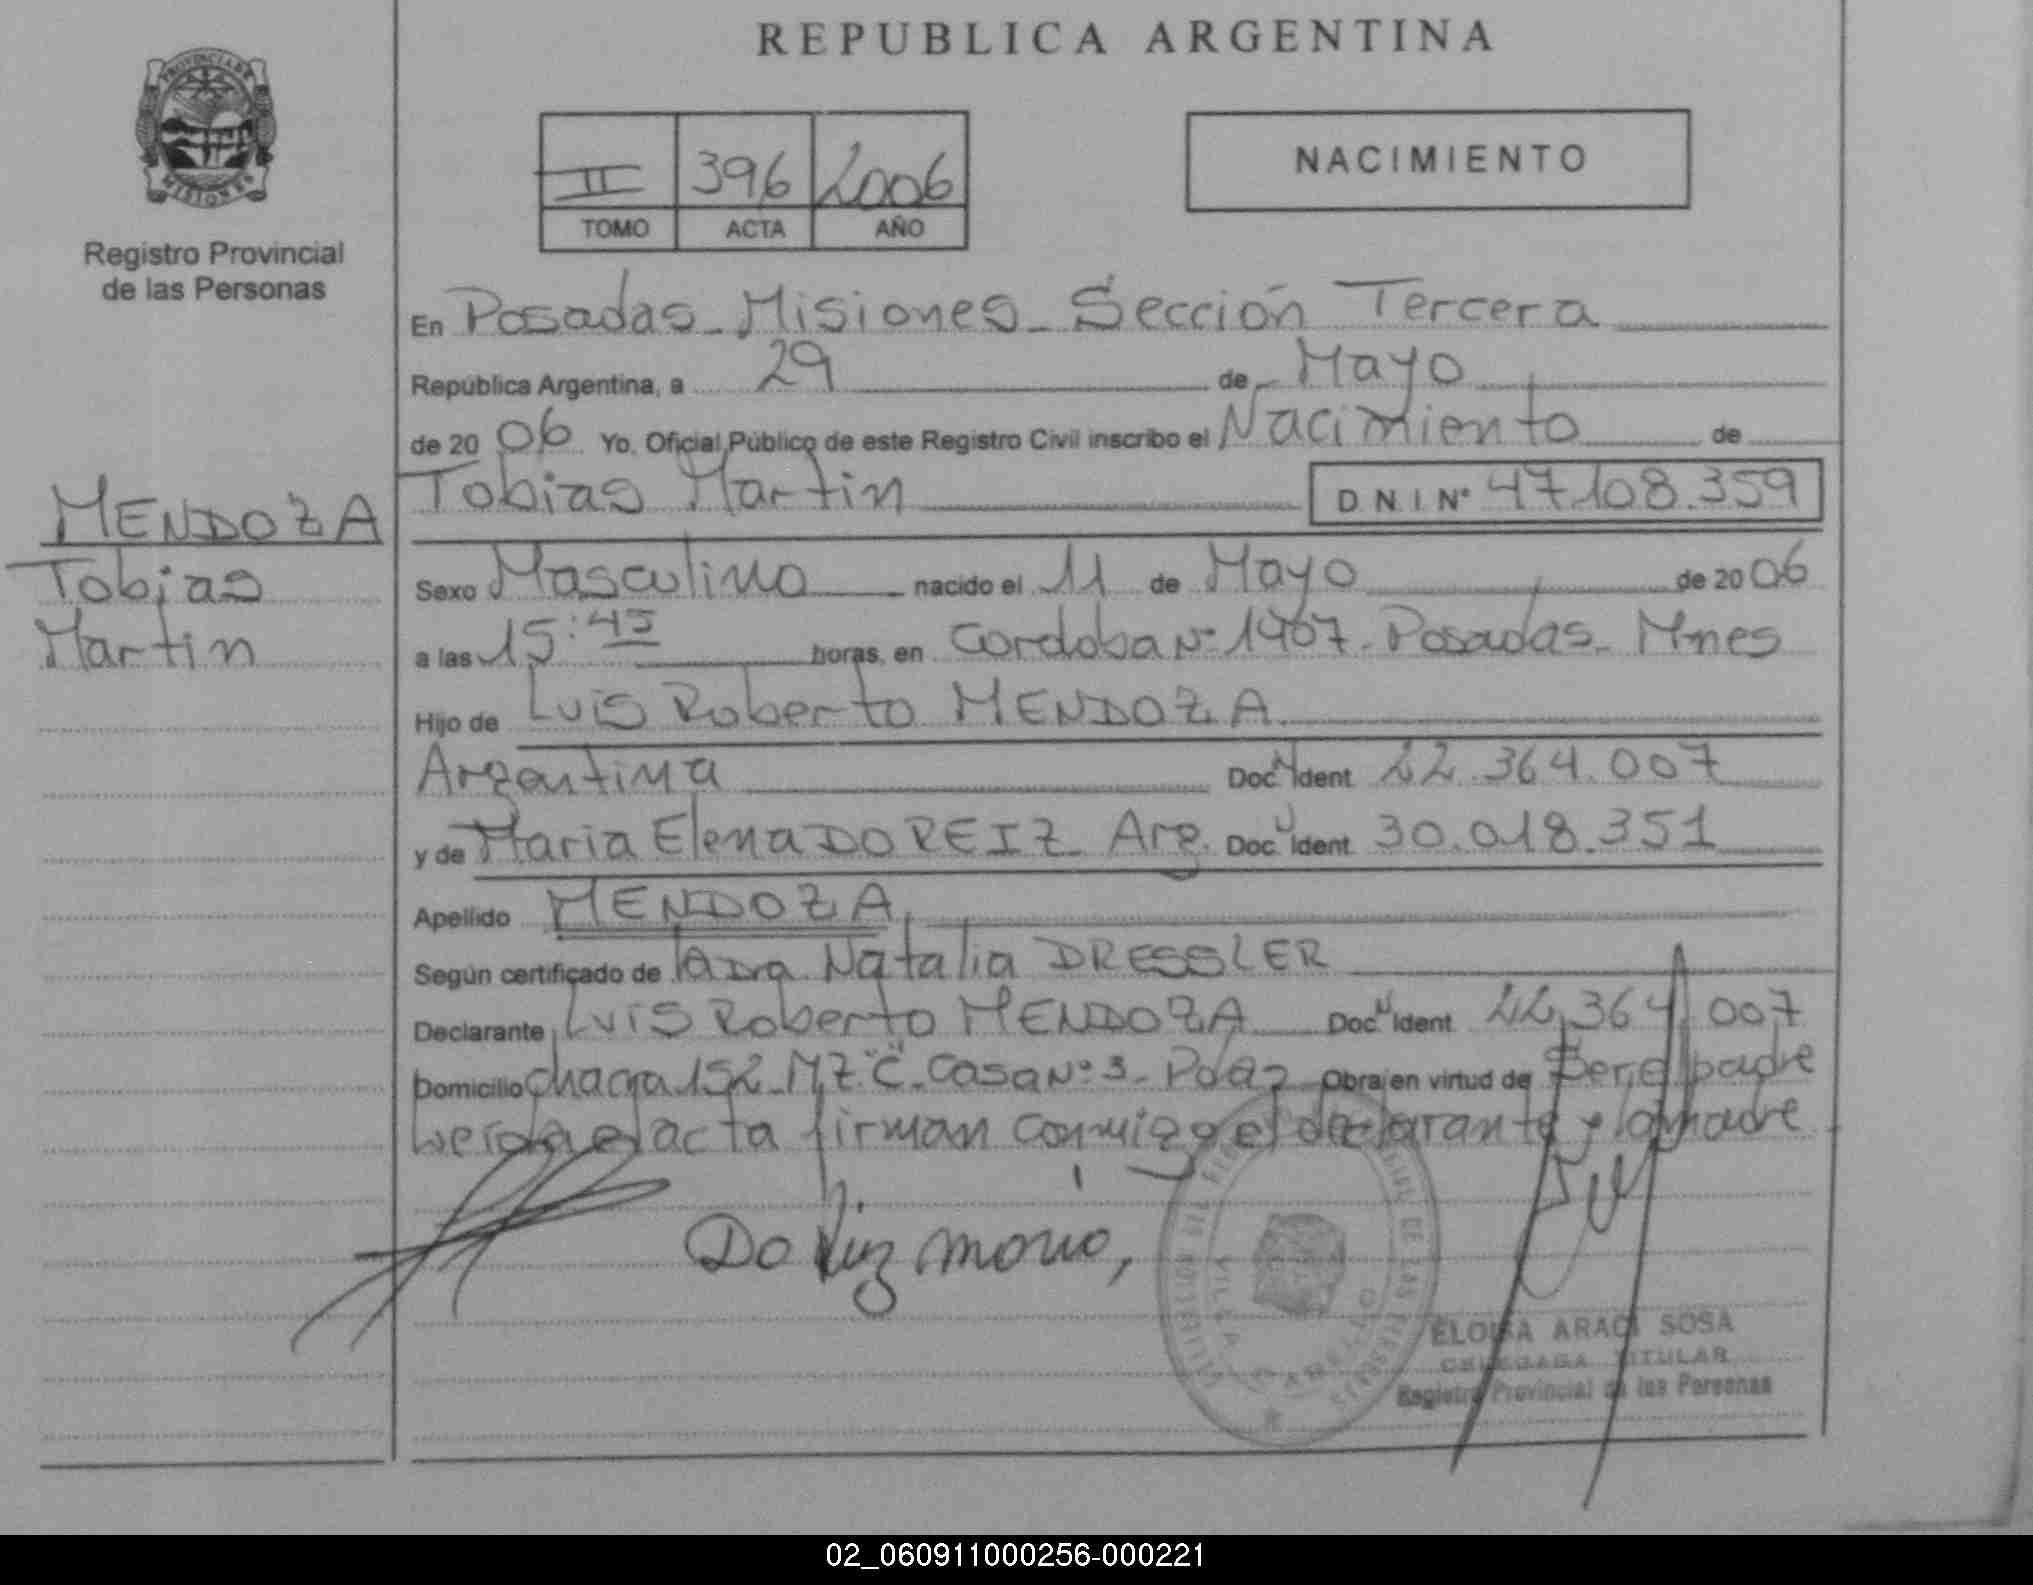 REPUBLICA ARGENTINA
PROVINCIA DE
MISIONES
Registro Provincial
de las Personas
II 396 2006
TOMO ACTA AÑO
NACIMIENTO
En Posadas - Misiones - Sección Tercera
República Argentina, a 29 de Mayo
de 20 06 Yo, Oficial Público de este Registro Civil inscribo el Nacimiento de
MENDOZA
Tobias
Martin
Tobias Martin D.N.I Nº 47.108.359
Sexo Masculino nacido el 11 de Mayo de 20 06
a las 15:45 horas, en Cordoba Nº 1407 - Posadas - Mnes
Hijo de Luis Roberto MENDOZA
Argentina Doc Ident 22.364.007
y de Maria Elena DO REIZ Arg. Doc Ident 30.018.351
Apellido MENDOZA
Según certificado de la Dra Natalia DRESSLER
Declarante Luis Roberto MENDOZA Doc Ident 22.364.007
Domicilio chacra 152 - MZ "C" - Casa Nº 3 - Pdas Obra en virtud de Ser el padre
acta firman conmigo el declarante y la madre
Do Reiz
ELOISA ARACI SOSA
DELEGADA TITULAR
Registro Provincial de las Personas
02_060911000256-000221